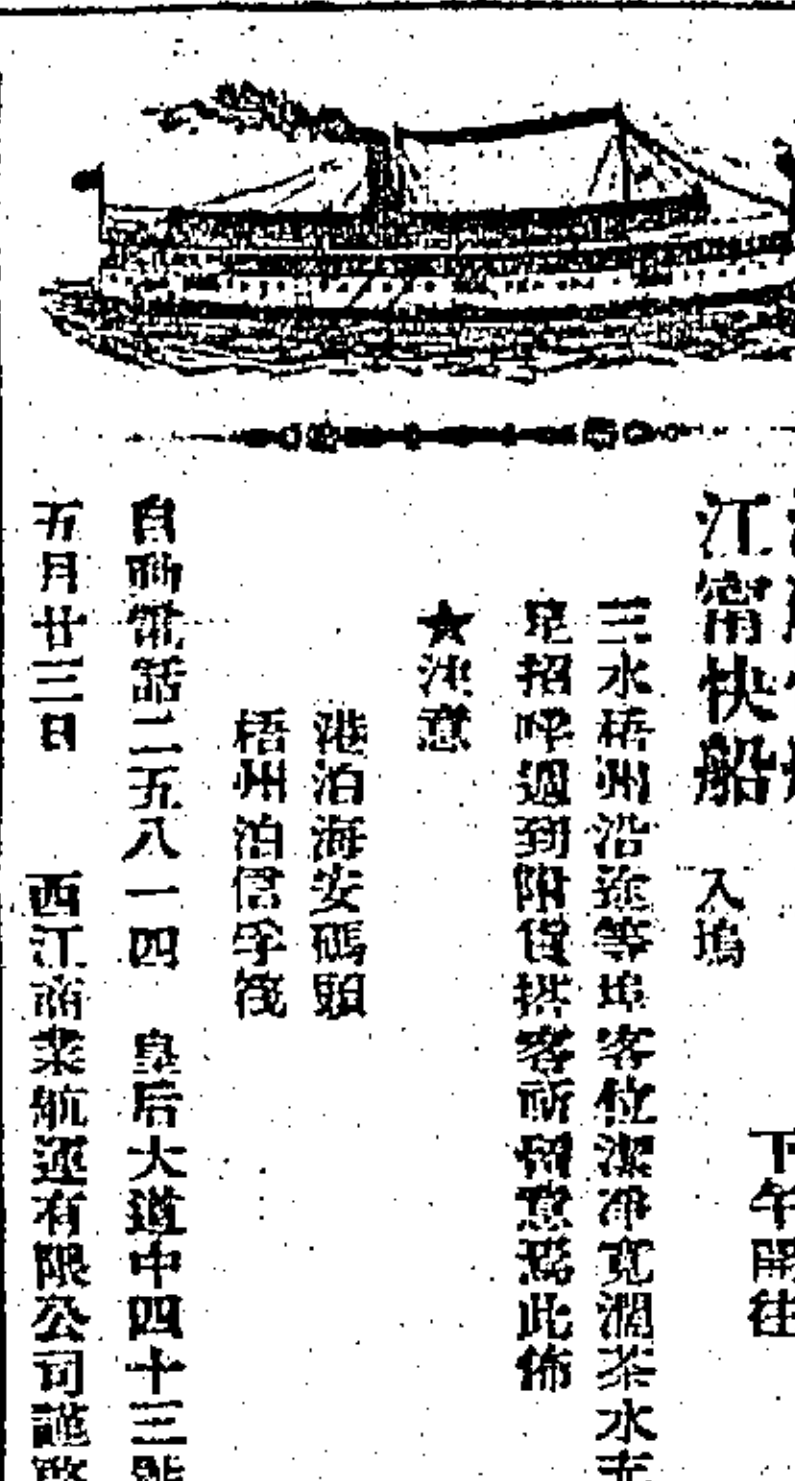 下午開往
江甯快船 入塢
三水梧州沿途等埠客位潔淨寬濶茶水
足招呼週到附貨搭客所留意焉此佈
★注意
港泊海安碼頭
梧州泊信孚筏
自動電話二五八一四 皇后大道中四十三號
五月廿三日 西江商業航運有限公司謹啟